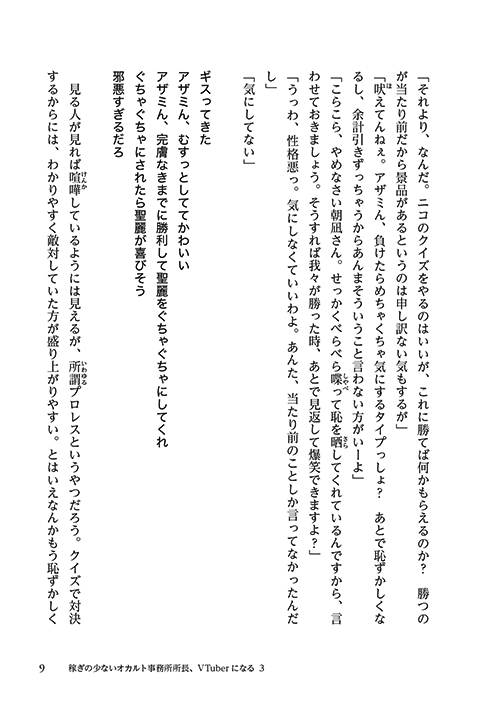 「それより、なんだ。ニコのクイズをやるのはいいが、これに勝てば何かもらえるのか？　勝つの
が当たり前だから景品があるというのは申し訳ない気もするが」
「吠えてんねぇ。アザミん、負けたらめちゃくちゃ気にするタイプっしょ？　あとで恥ずかしくな
るし、余計引きずっちゃうからあんまそういうこと言わない方がいーよ」
「こらこら、やめなさい朝凪さん。せっかくべらべら喋って恥を晒してくれているんですから、言
わせておきましょう。そうすれば我々が勝った時、あとで見返して爆笑できますよ？」
「うっわ、性格悪っ。気にしなくていいわよ。あんた、当たり前のことしか言ってなかったんだ
し」
「気にしてない」
ギスってきた
アザミん、むすっとしててかわいい
アザミん、完膚なきまでに勝利して聖麗をぐちゃぐちゃにしてくれ
ぐちゃぐちゃにされたら聖麗が喜びそう
邪悪すぎるだろ
見る人が見れば喧嘩しているようには見えるが、所謂プロレスというやつだろう。クイズで対決
するからには、わかりやすく敵対していた方が盛り上がりやすい。とはいえなんかもう恥ずかしく
9　稼ぎの少ないオカルト事務所所長、VTuberになる 3